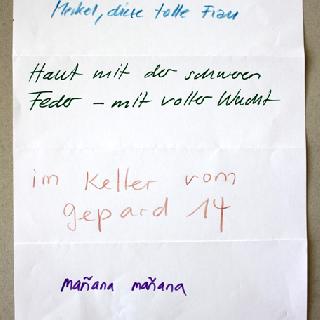 Merkel, diese tolle Frau
Haut mit der schweren
Feder – mit voller Wucht
im Keller vom
gepard 14
mañana mañana